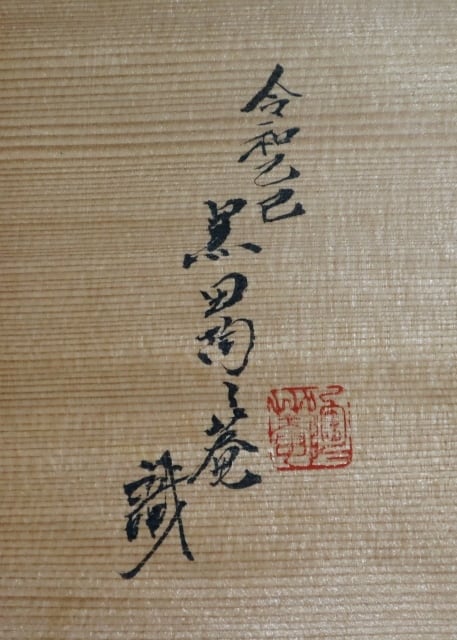 令和乙巳
黒田陶々菴
識